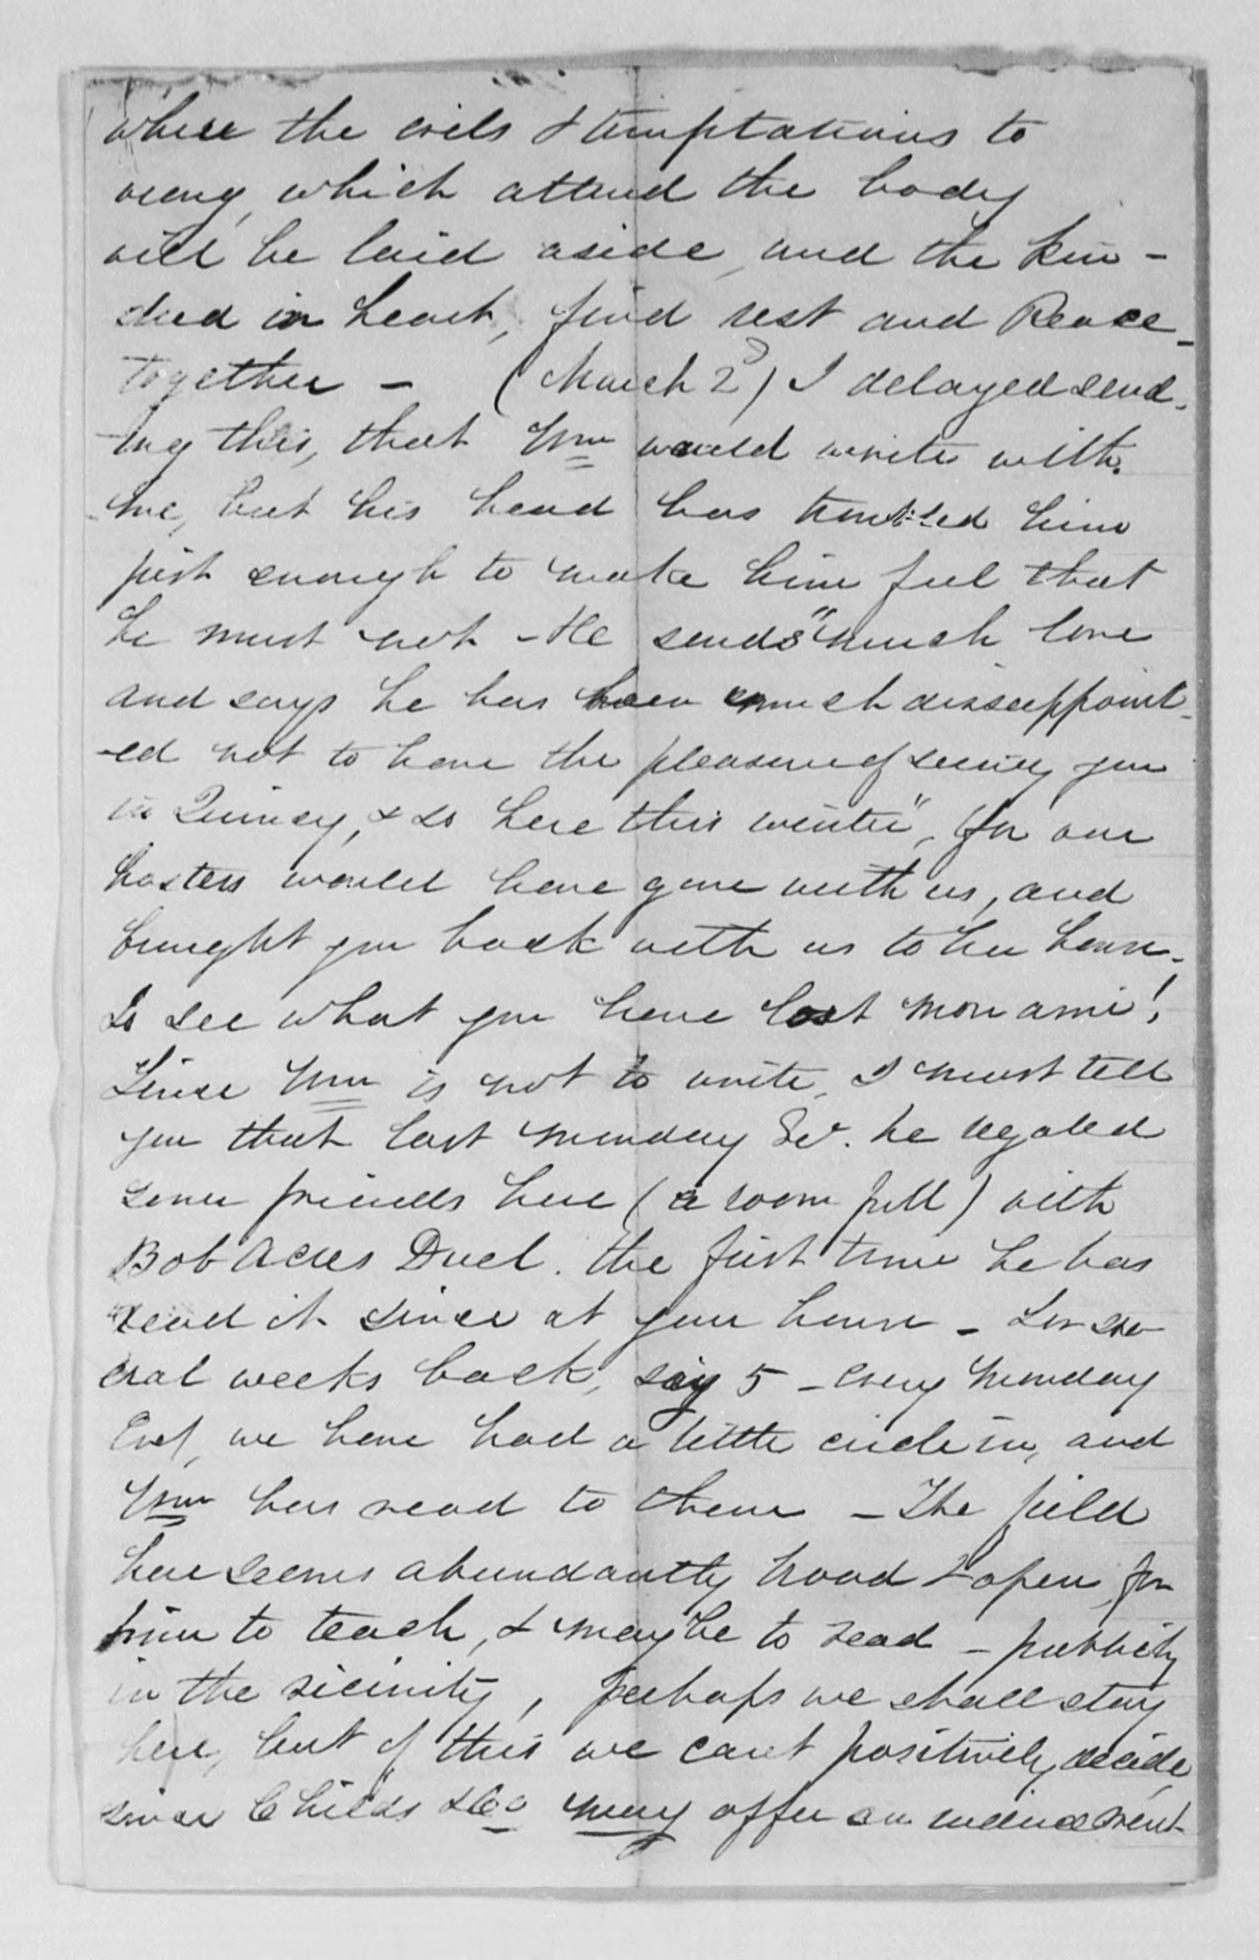 where the evils & temptations to
wrong, which attend the body
will be laid aside, and the kin-
dred in heart, find rest and Peace
together - (March 2d) I delayed send-
ing this, that Wm would write with
me, but his head has troubled him
just enough to make him feel that
he must not - He sends "much love
and says he has been much dissappoint-
-ed not to have the pleasure of seeing you
in Quincy, & so here this winter", for our
hostess would have gone with us, and
brought you back with us to her house.
So see what you have lost mon ami!
Since Wm is not to write, I must tell
you that last Monday Ev. he regaled
some friends here (a room full) with
Bob Acres Duel. the first time he has
read it since at your house - For sev-
eral weeks back, say 5 - every Monday
Eve, we have had a little circle in, and
Wm has read to them - The field
here seems abundantly broad & open, for
him to teach, & maybe to read - publicly
in the vicinity, perhaps we shall stay
here, but of this we can't positively decide,
since Childs & Co may offer an inducement